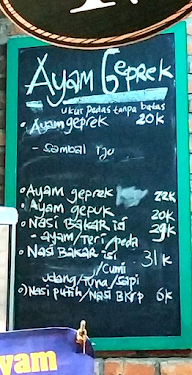 Ayam Geprek
ukur Pedas tanpa batas
• Ayam geprek 20K
- Sambal Ijo
• Ayam geprek 22K
• Ayam gepuk 20K
• Nasi Bakar isi 29K
• ayam/Teri/peda
• Nasi Bakar isi 31K
/Cumi
udang/tuna/sapi
•) Nasi putih/Nasi Bkrp 6K
yam